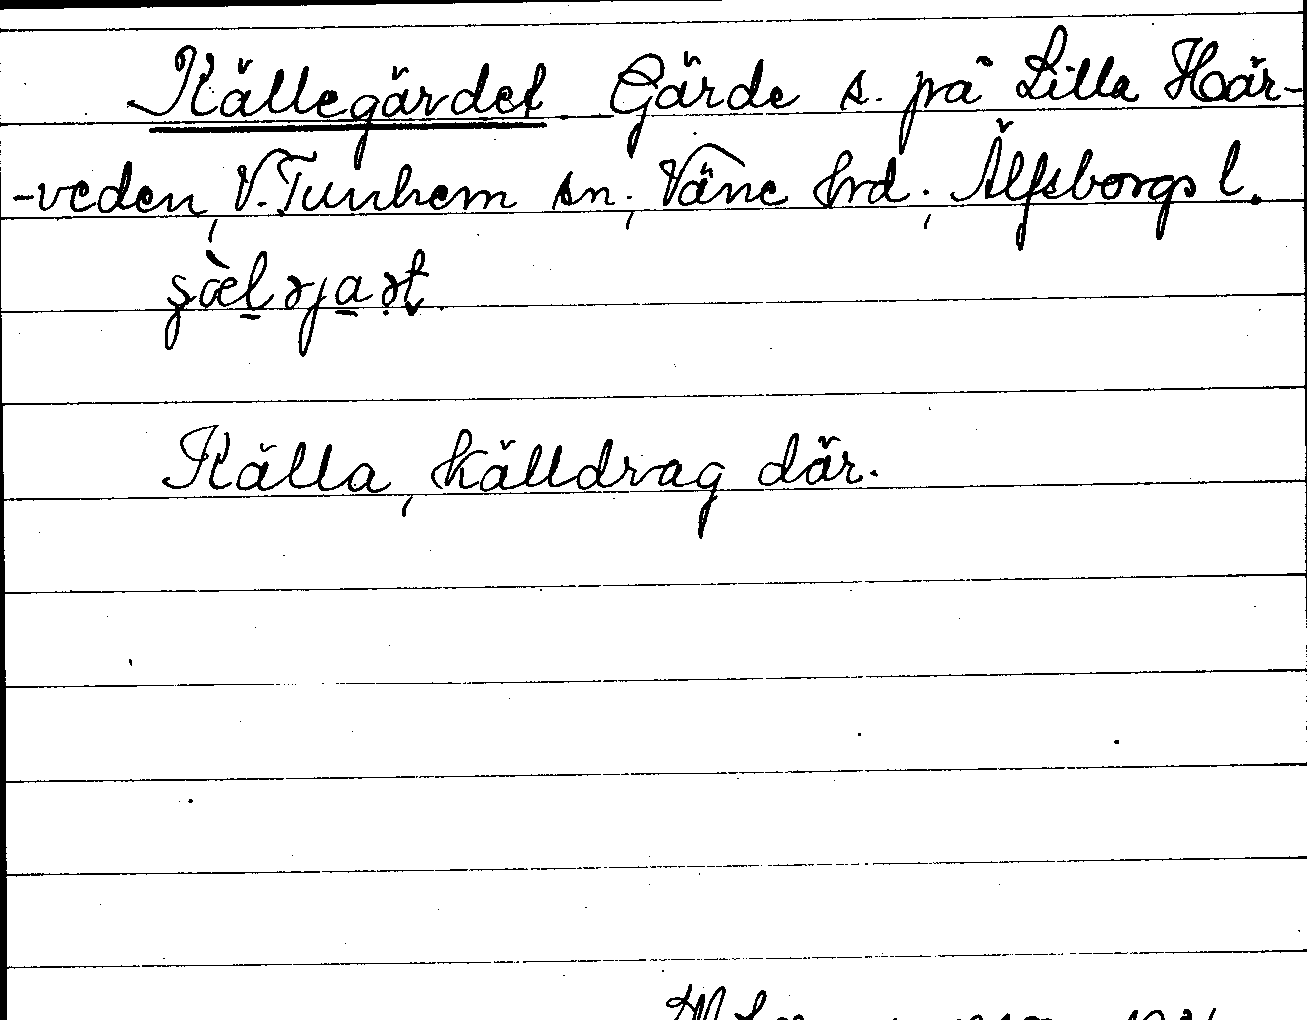 Källegärdet. Gärde s. på Lilla Här-
-veden, V. Tunhem sn; Väne hrd; Älfsborgs l.
Källa, källdrag där.